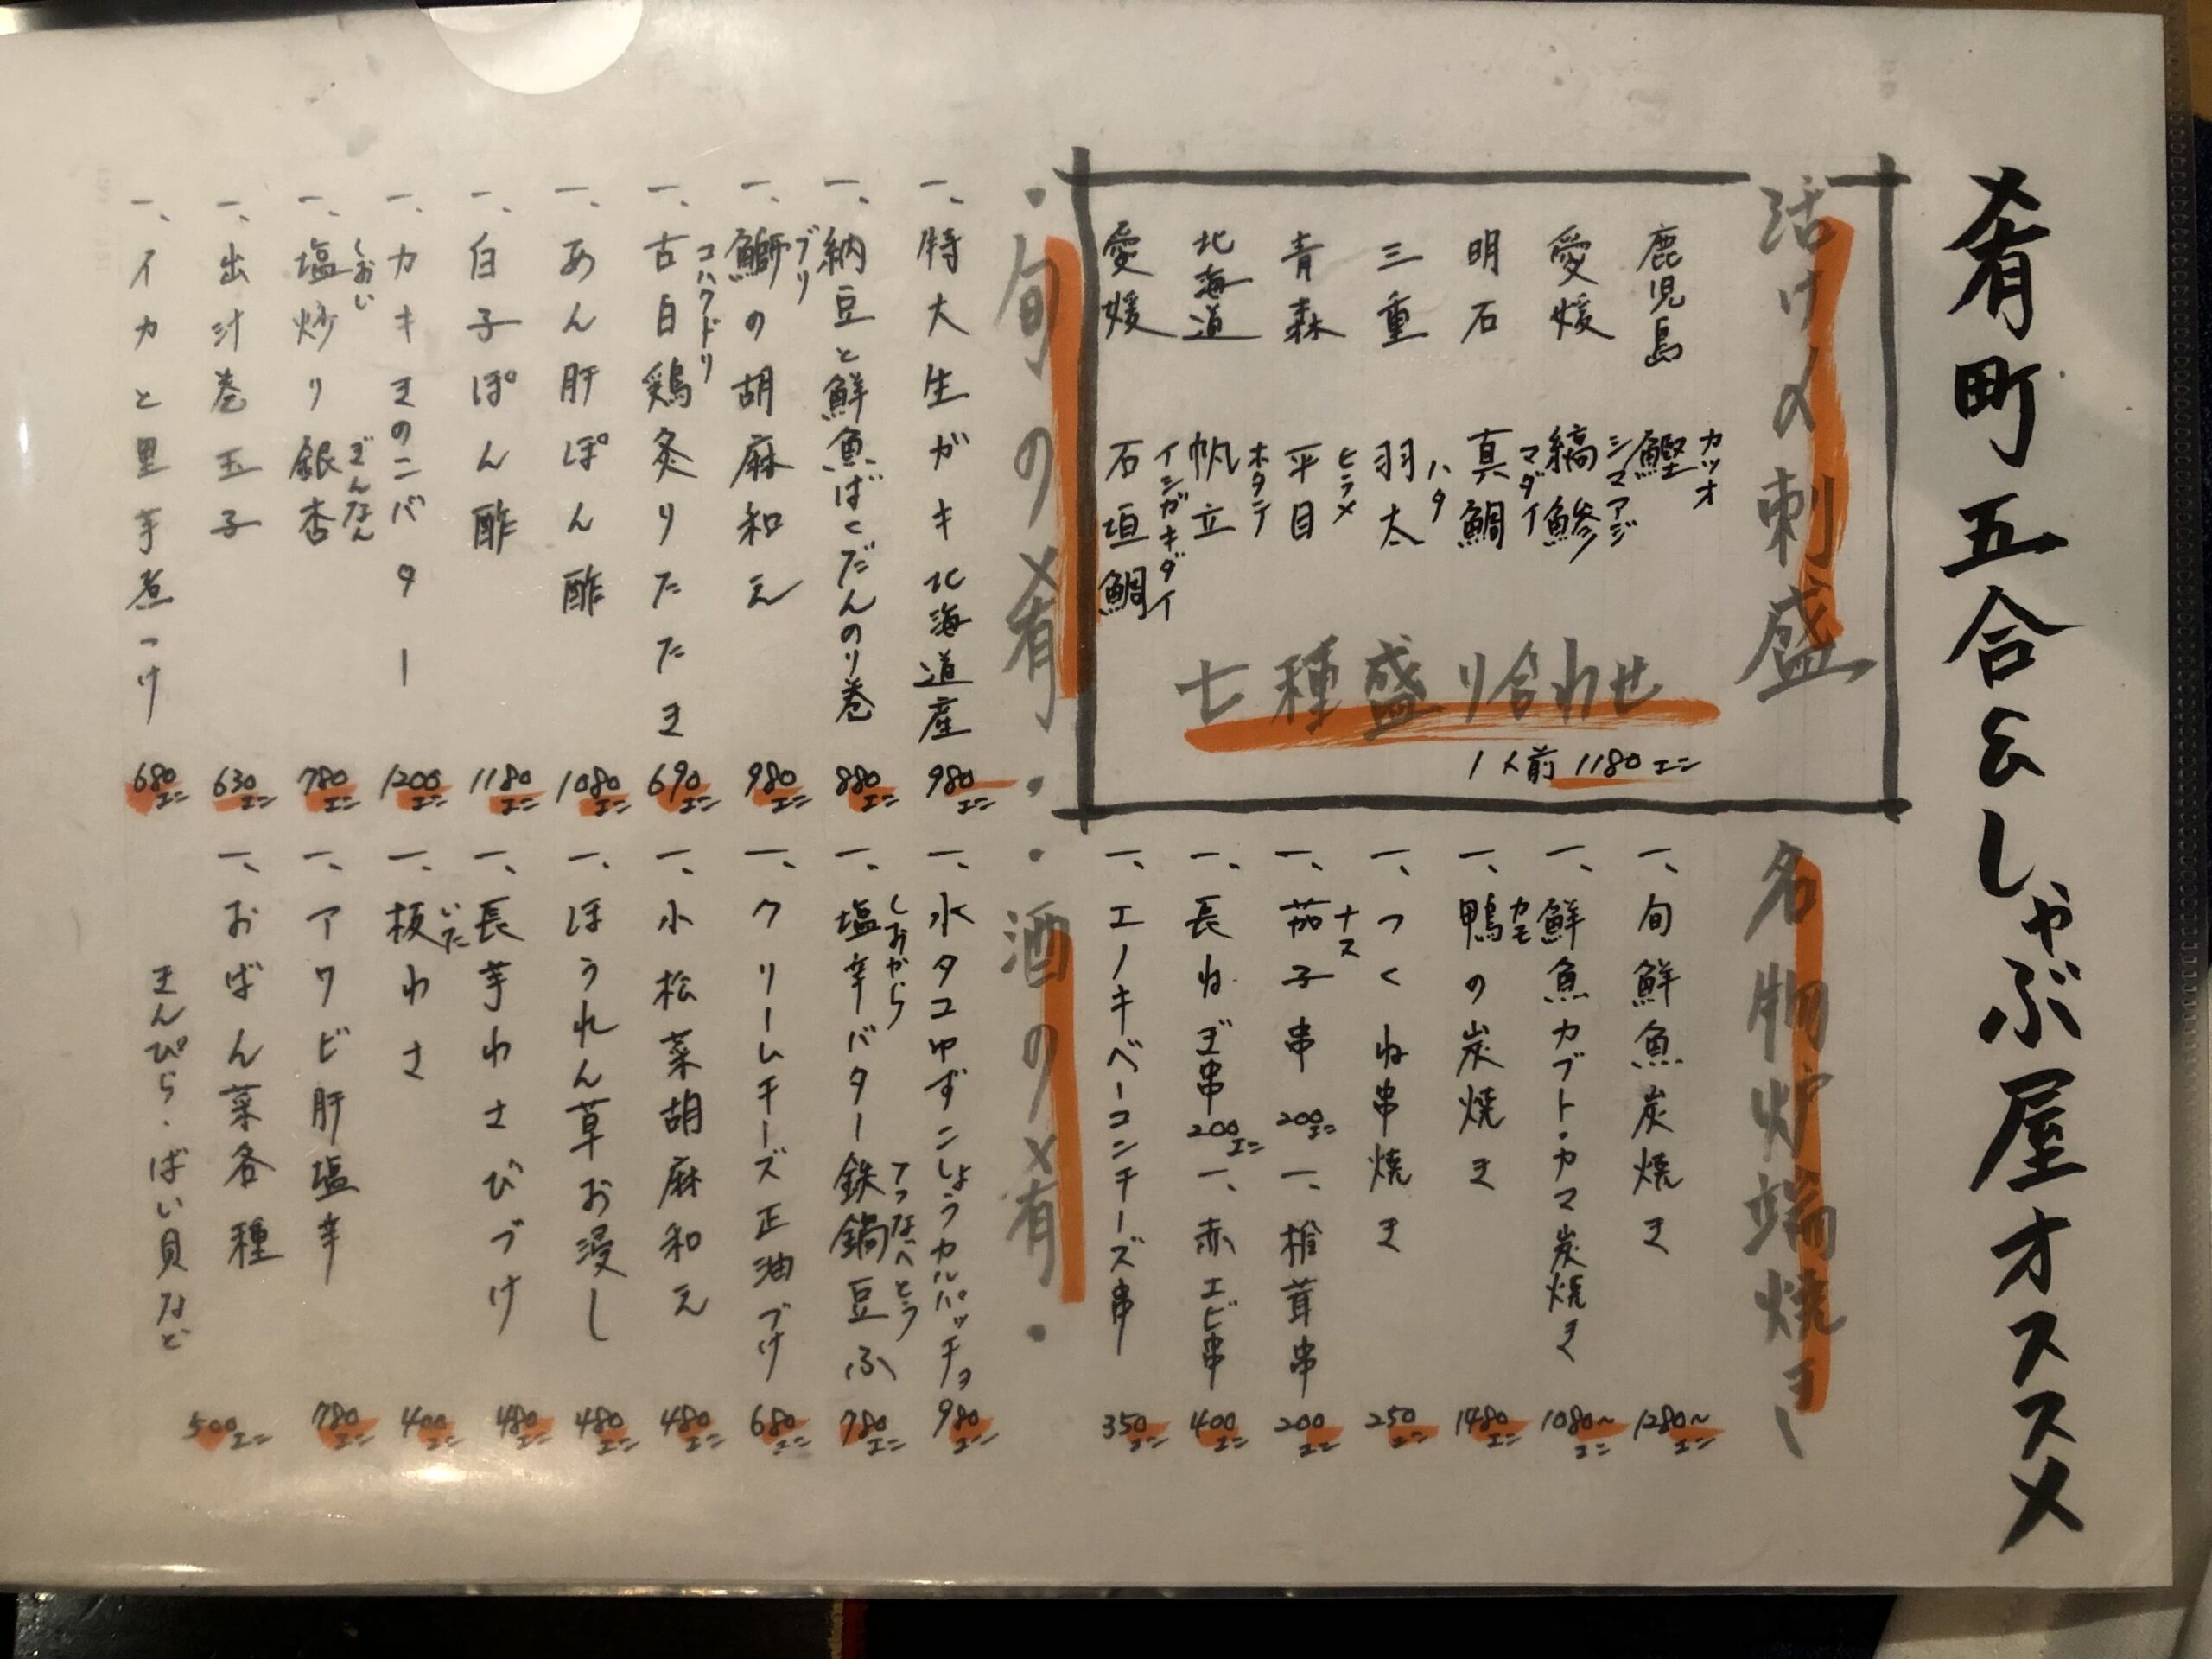 肴町五合&しゃぶ屋オススメ
活け〆刺盛
鹿児島 鰹 カツオ
愛媛 縞鯵 シマアジ
明石 真鯛 マダイ
三重 羽太 ハタ
青森 平目 ヒラメ
北海道 帆立 ホタテ
愛媛 石垣鯛 イシガキダイ
七種盛り合わせ
1人前 1180エン
名物炉端焼き
一、旬鮮魚炭焼き 1280〜エン
一、鮮魚カブト・カマ炭焼き 1080〜エン
一、鴨の炭焼き カモ 1480エン
一、つくね串焼き 250エン
一、茄子串 ナス 200エン 一、椎茸串 200エン
一、長ねぎ串 200エン 一、赤エビ串 400エン
一、エノキベーコンチーズ串 350エン
・旬の肴・
一、特大生ガキ北海道産 980エン
一、納豆と鮮魚ばくだんのり巻 880エン
一、鰤の胡麻和え ブリ 980エン
一、古白鶏炙りたたき コハクドリ 690エン
一、あん肝ぽん酢 1080エン
一、白子ぽん酢 1180エン
一、カキキのこバター 1200エン
一、塩炒り銀杏 しおいり ぎんなん 780エン
一、出汁巻玉子 630エン
一、イカと里芋煮つけ 680エン
・酒の肴・
一、水タコゆずこしょうカルパッチョ 980エン
一、塩辛バター鉄鍋豆ふ しおから てつなべとうふ 780エン
一、クリームチーズ正油づけ 680エン
一、小松菜胡麻和え 480エン
一、ほうれん草お浸し 480エン
一、長芋わさびづけ 480エン
一、板わさ いた 400エン
一、アワビ肝塩辛 780エン
一、おばん菜各種 500エン
きんぴら・ばい貝など